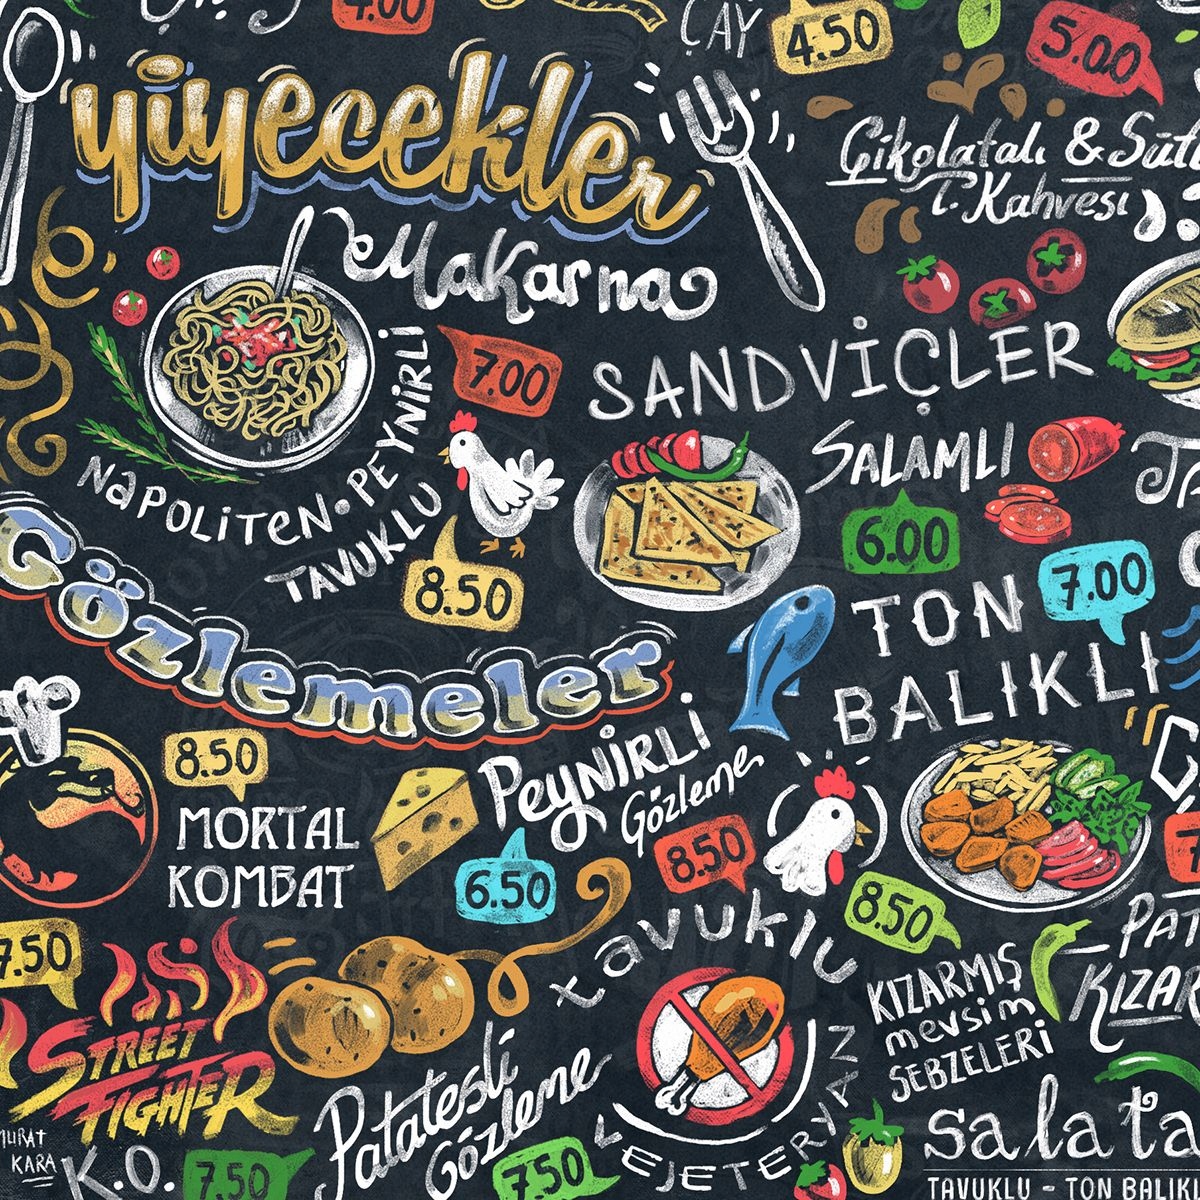 4.00
ÇAY
4.50
5.00
yiyecekler
Çikolatalı & Süt
T. Kahvesi
Makarna
7.00
NAPOLİTEN • PEYNİRLİ
TAVUKLU
8.50
SANDVİÇLER
SALAMLI
6.00
TON
BALIKLI
7.00
Gözlemeler
8.50
MORTAL
KOMBAT
PEYNİRLİ
Gözleme
6.50
8.50
tavuklu
8.50
7.50
STREET
FIGHTER
K.O.
7.50
MURAT
KARA
Patatesli
Gözleme
7.50
VEJETERYAN
KIZARMIŞ
mevsim
SEBZELERİ
PAT
KIZAR
salata
TAVUKLU - TON BALIKL